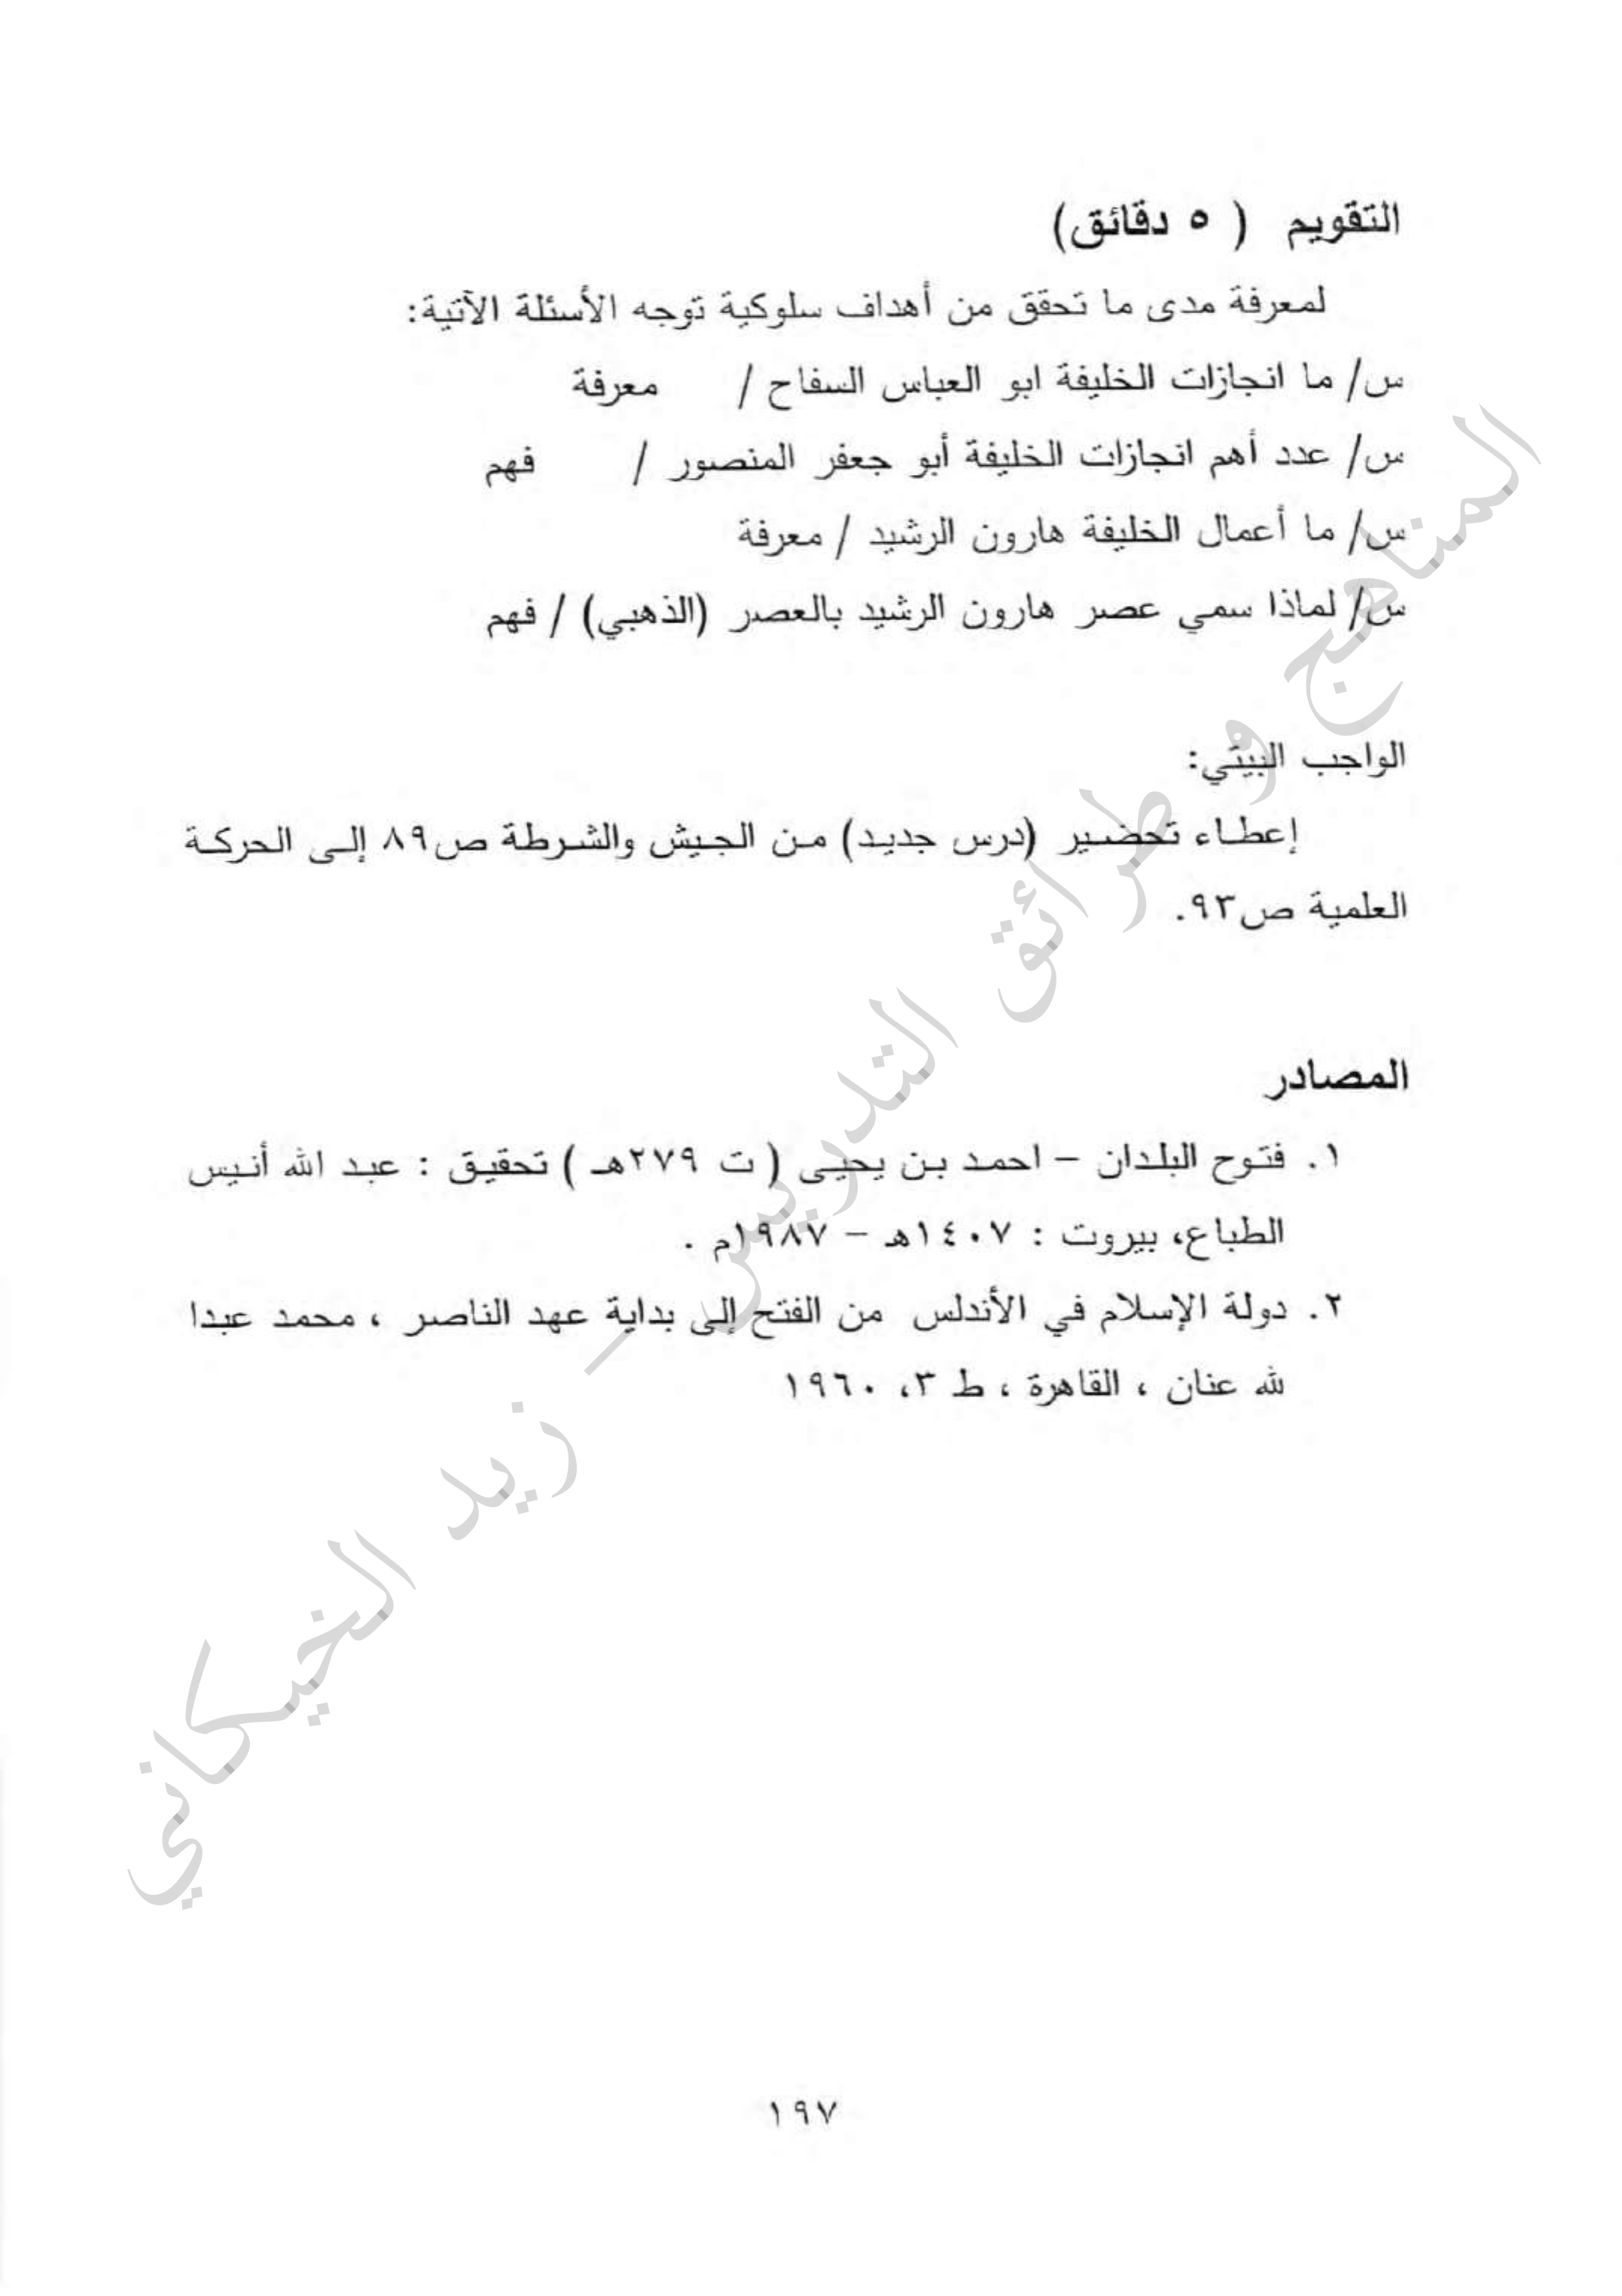 التقويم ( ٥ دقائق)
لمعرفة مدى ما تحقق من أهداف سلوكية توجه الأسئلة الآتية:
س/ ما انجازات الخليفة ابو العباس السفاح / معرفة
س/ عدد أهم انجازات الخليفة أبو جعفر المنصور / فهم
س/ ما أعمال الخليفة هارون الرشيد / معرفة
س/ لماذا سمي عصر هارون الرشيد بالعصر (الذهبي) / فهم
الواجب البيتي:
إعطاء تحضير (درس جديد) من الجيش والشرطة ص٨٩ إلى الحركة
العلمية ص٩٣.
المصادر
١. فتوح البلدان – احمد بن يحيى ( ت ٢٧٩هـ ) تحقيق : عبد الله أنيس
الطباع، بيروت : ١٤٠٧هـ – ١٩٨٧م .
٢. دولة الإسلام في الأندلس من الفتح إلى بداية عهد الناصر ، محمد عبدا
لله عنان ، القاهرة ، ط ٣، ١٩٦٠
المناهج وطرائق التدريس – زيد الخيكاني
١٩٧